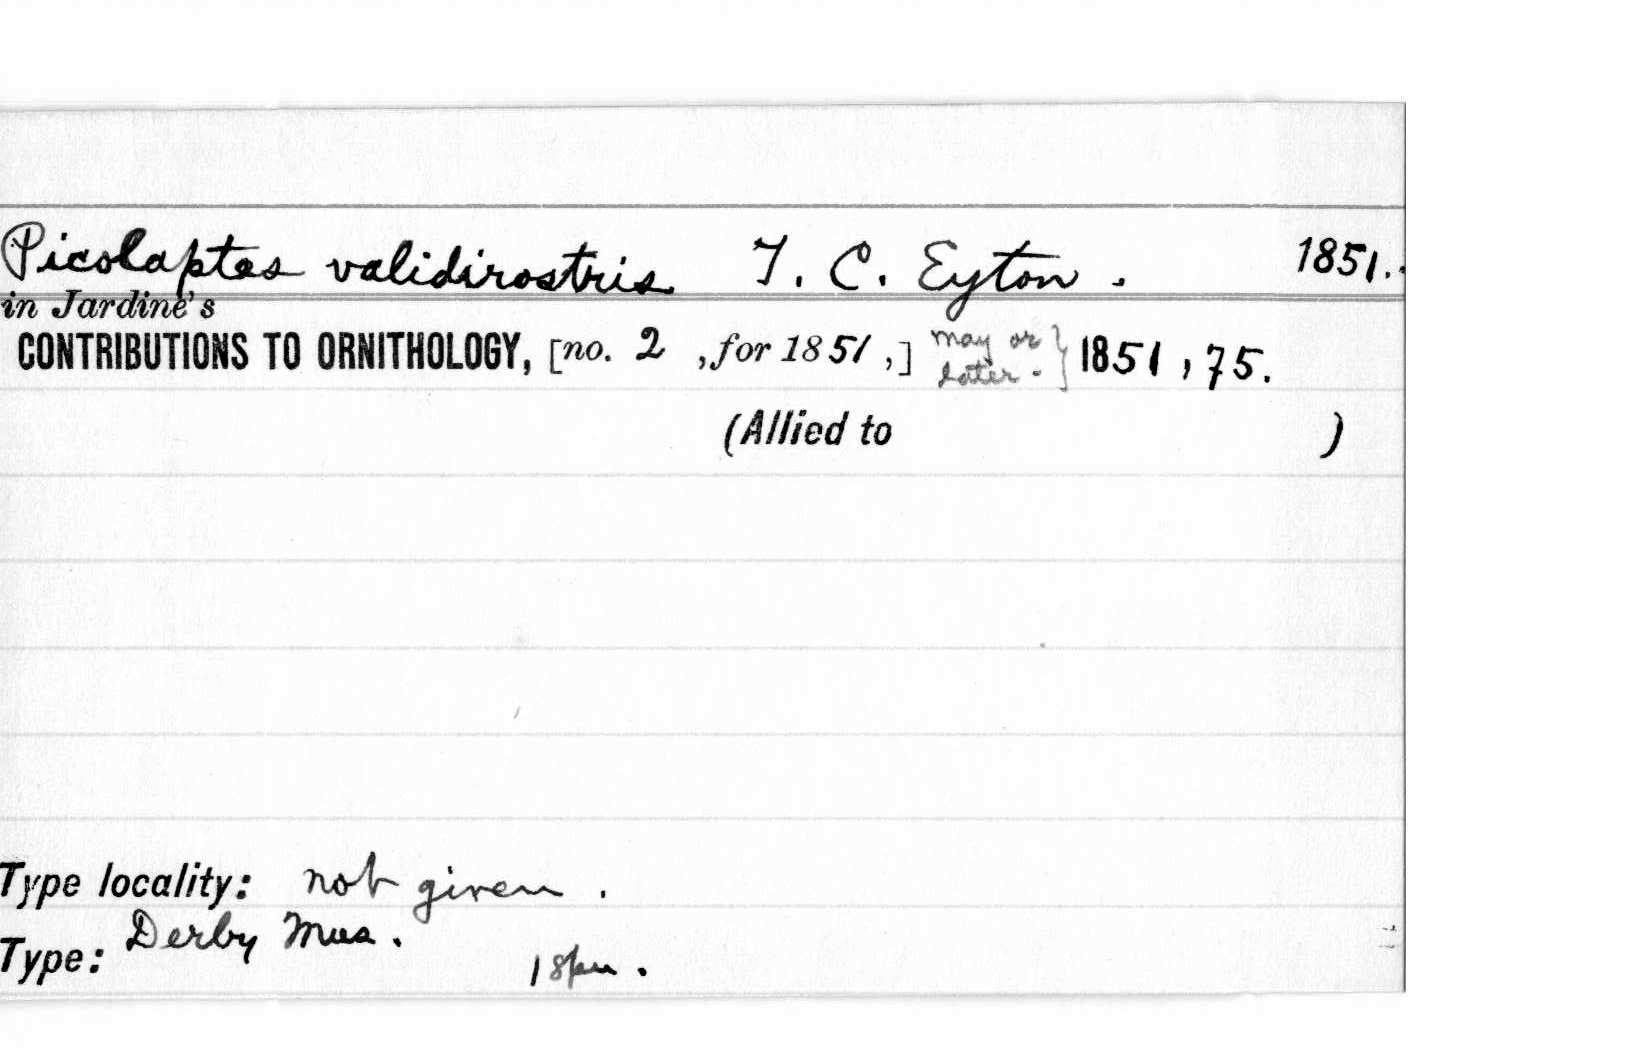 Picolaptes validirostris T. C. Eyton. 1851.
in Jardine's
CONTRIBUTIONS TO ORNITHOLOGY, [no. 2, for 1851,] may or later. } 1851, 75.
(Allied to )
Type locality: not given.
Type: Derby Mus.
1 spm.